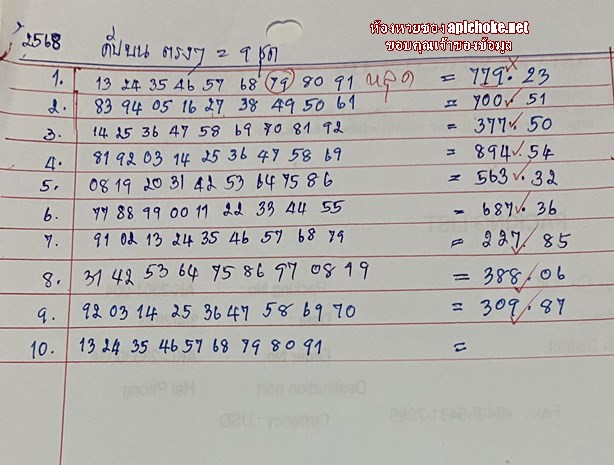 ห้องหวยของ apichoke.net
ขอบคุณเจ้าของข้อมูล
2568 ดับบน ตรงๆ = 9 ชุด
1. 13 24 35 46 57 68 79 80 91 หลุด = 779.23
2. 83 94 05 16 27 38 49 50 61 = 700.51
3. 14 25 36 47 58 69 70 81 92 = 377.50
4. 81 92 03 14 25 36 47 58 69 = 894.54
5. 08 19 20 31 42 53 64 75 86 = 563.32
6. 77 88 99 00 11 22 33 44 55 = 687.36
7. 91 02 13 24 35 46 57 68 79 = 227.85
8. 31 42 53 64 75 86 97 08 19 = 388.06
9. 92 03 14 25 36 47 58 69 70 = 309.87
10. 13 24 35 46 57 68 79 80 91 =